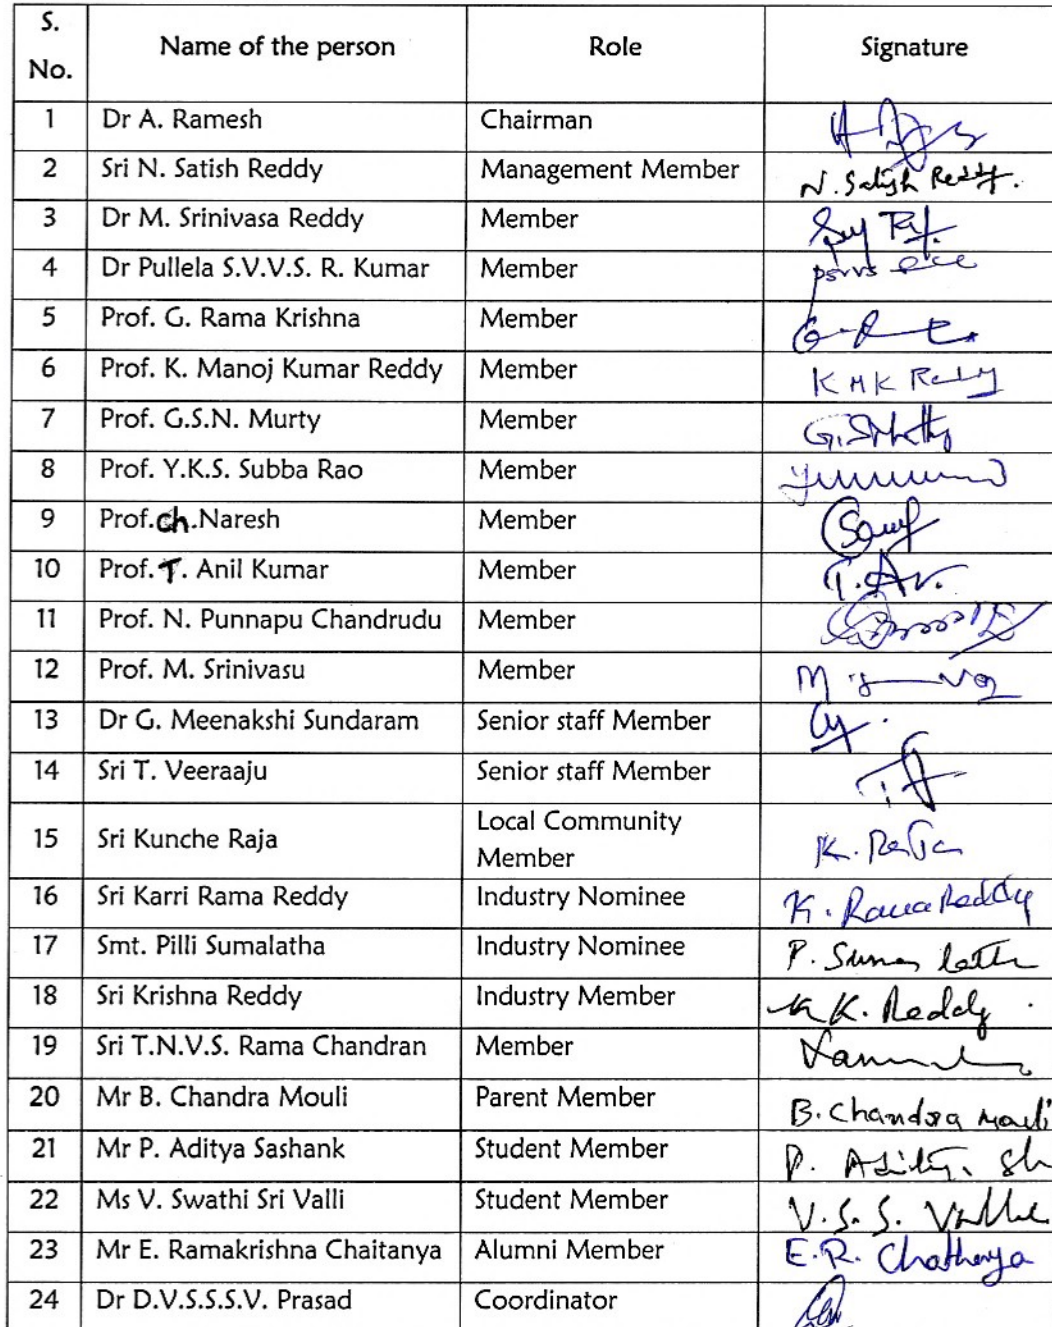 S. No. Name of the person Role Signature
1 Dr A. Ramesh Chairman
2 Sri N. Satish Reddy Management Member N. Satish Reddy.
3 Dr M. Srinivasa Reddy Member
4 Dr Pullela S.V.V.S. R. Kumar Member
5 Prof. G. Rama Krishna Member
6 Prof. K. Manoj Kumar Reddy Member K M K Reddy
7 Prof. G.S.N. Murty Member
8 Prof. Y.K.S. Subba Rao Member
9 Prof.ch.Naresh Member
10 Prof. T. Anil Kumar Member
11 Prof. N. Punnapu Chandrudu Member
12 Prof. M. Srinivasu Member
13 Dr G. Meenakshi Sundaram Senior staff Member
14 Sri T. Veeraaju Senior staff Member
15 Sri Kunche Raja Local Community Member K. Raja
16 Sri Karri Rama Reddy Industry Nominee K. Rama Reddy
17 Smt. Pilli Sumalatha Industry Nominee P. Suma latha
18 Sri Krishna Reddy Industry Member K. Reddy
19 Sri T.N.V.S. Rama Chandran Member
20 Mr B. Chandra Mouli Parent Member B. Chandra Mouli
21 Mr P. Aditya Sashank Student Member P. Aditya Sh
22 Ms V. Swathi Sri Valli Student Member V. S. S. Vallie
23 Mr E. Ramakrishna Chaitanya Alumni Member E. R. Chaithanya
24 Dr D.V.S.S.S.V. Prasad Coordinator